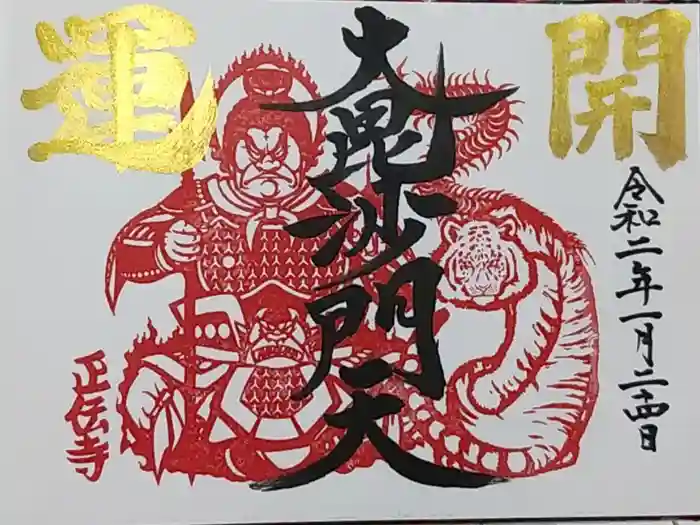 開運
令和二年一月二十四日
大毘沙門天
正伝寺